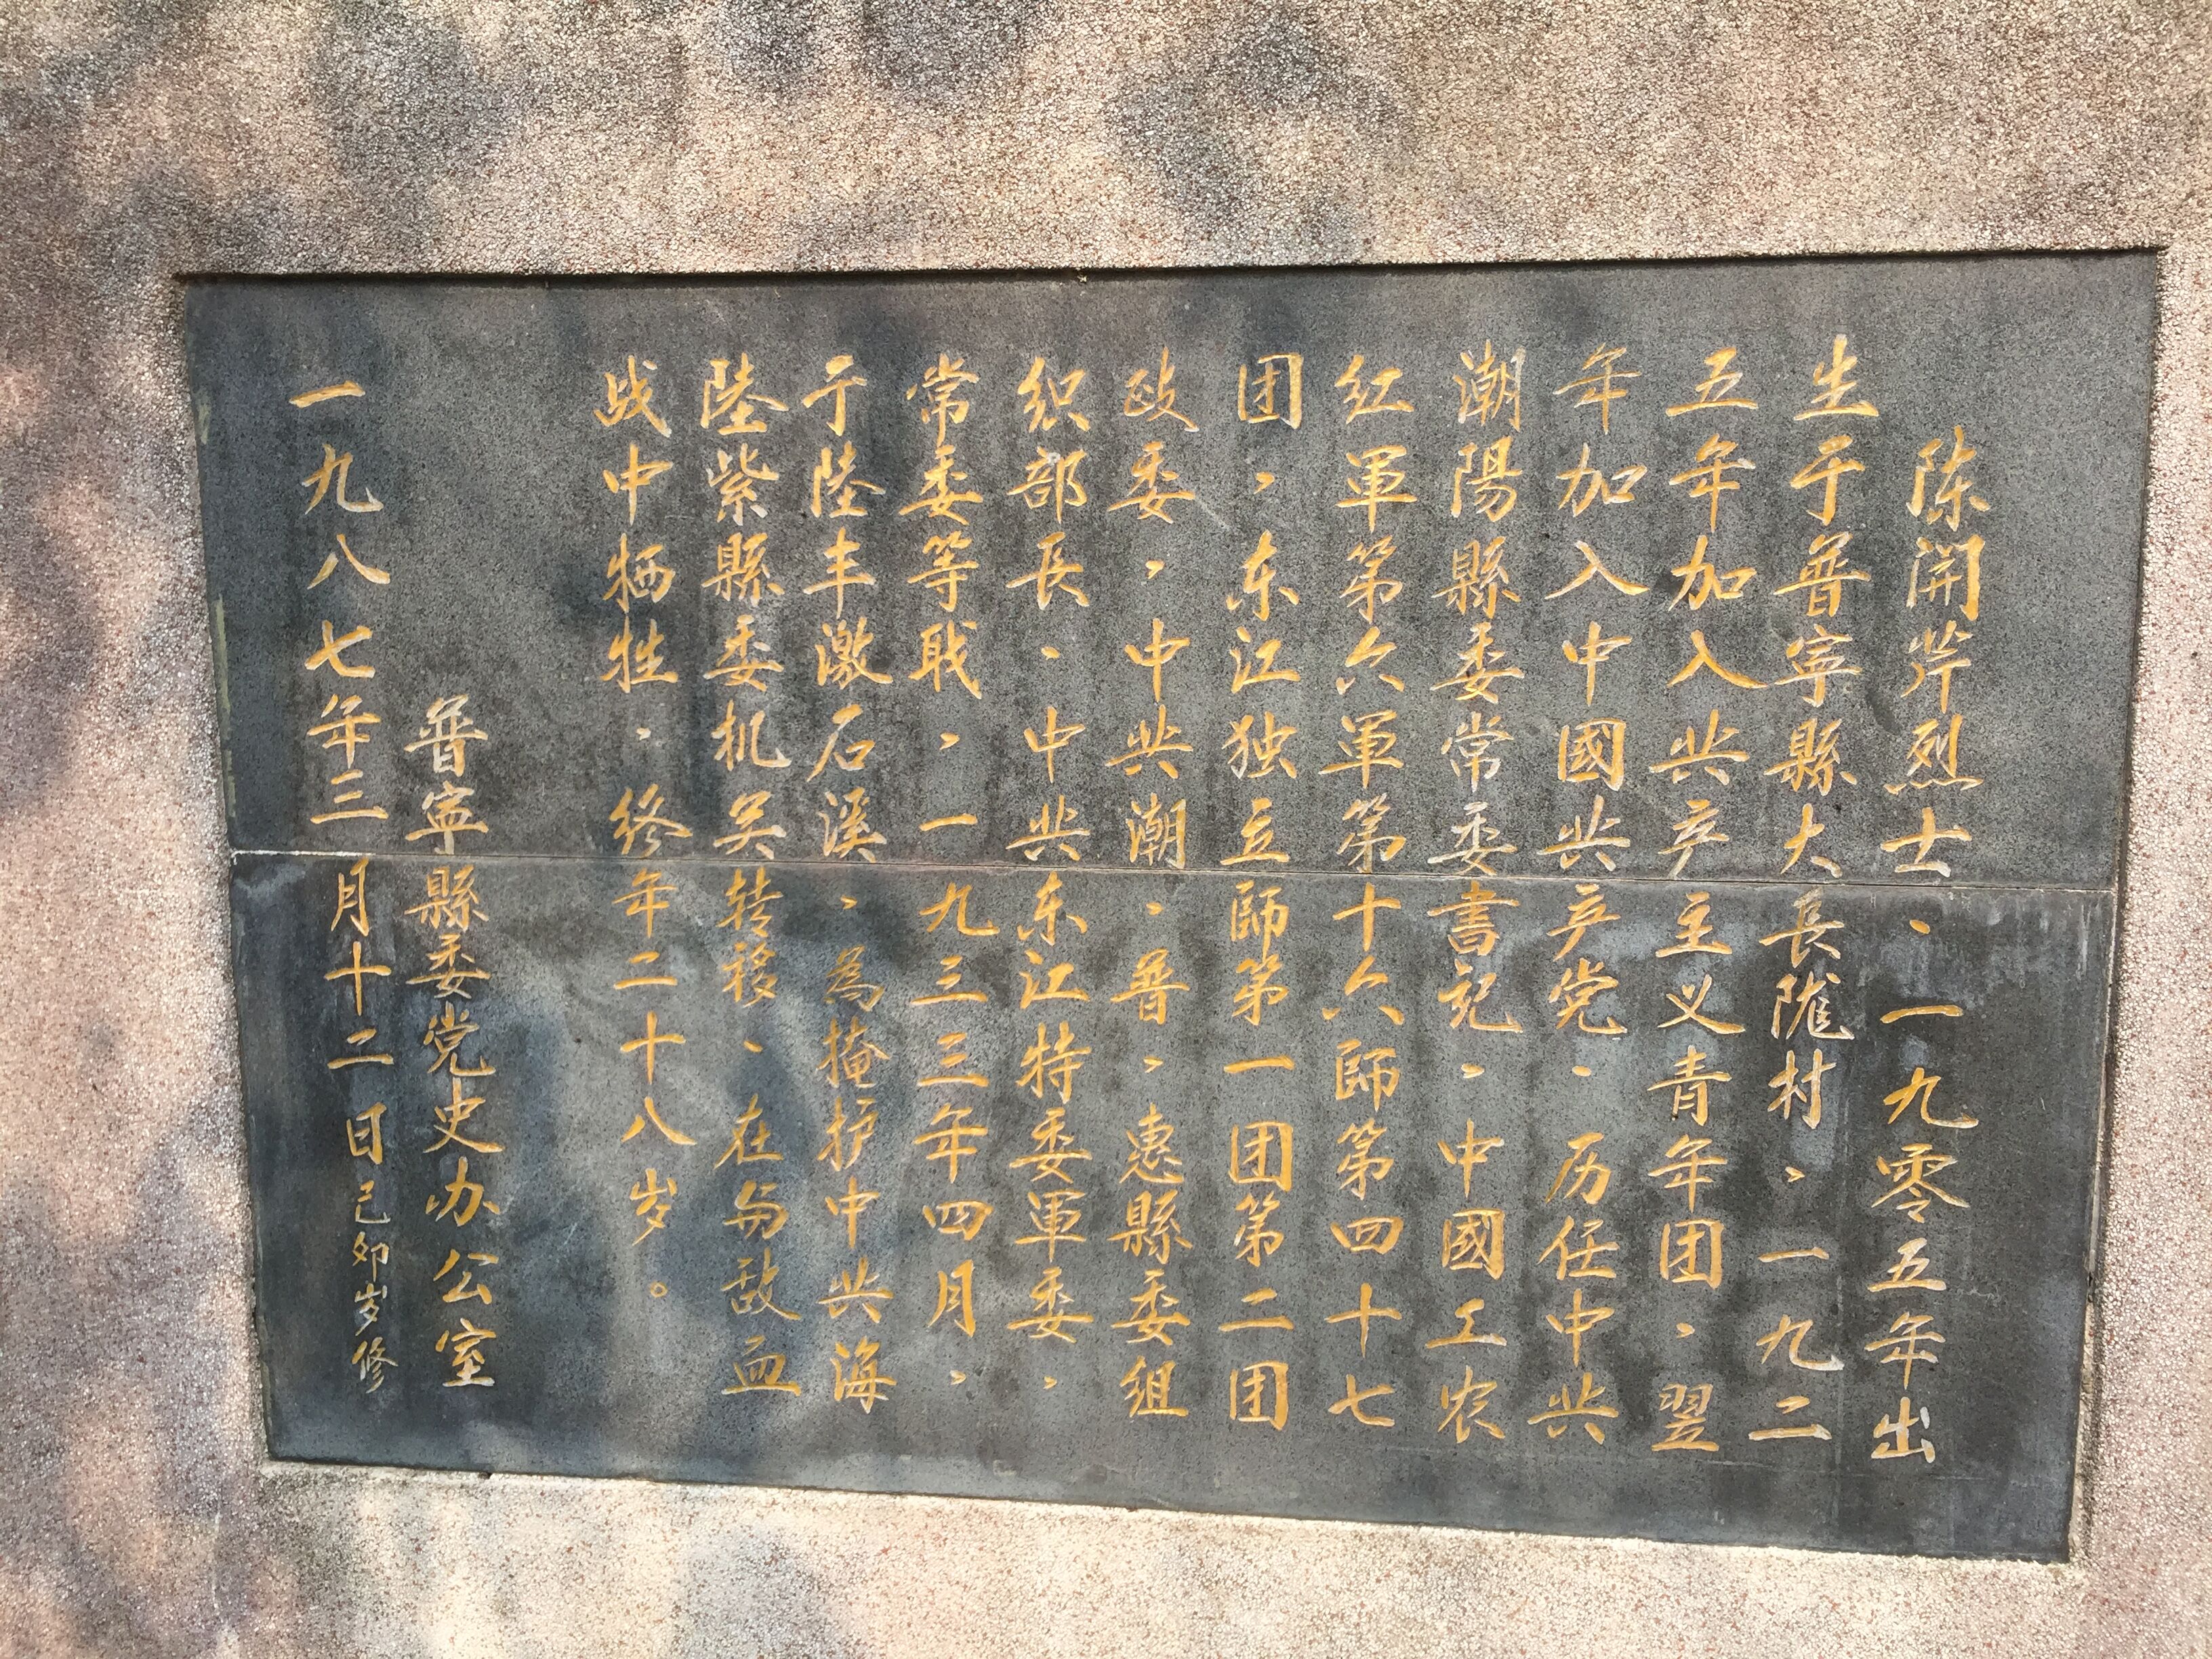 陈開芹烈士、一九零五年出
生于普寧縣大長隴村、一九二
五年加入共产主义青年团、翌
年加入中國共产党、历任中共
潮陽縣委常委書记、中國工农
红軍第六軍第十六師第四十七
团、东江独立師第一团第二团
政委、中共潮、普、惠縣委組
织部長、中共东江特委軍委、
常委等职、一九三三年四月、
于陸丰激石溪、為掩护中共海
陸紫縣委机关转移、在与敌血
战中牺牲、终年二十八岁。
普寧縣委党史办公室
一九八七年三月十二日己卯岁修